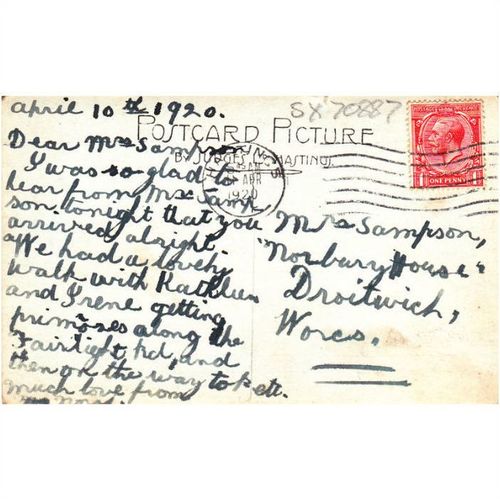 April 10th 1920.
SX 70887
POSTCARD PICTURE
BY JUDGES LTD HASTINGS
Dear Mrs Sampson
I was so glad to
hear from Mrs
son tonight that you
arrived alright.
We had a lovely
walk with Kathleen
and I rene getting
primroses along the
Fairlight Rd, and
then on the way to
much love from
HASTINGS
APR
1920
POSTAGE REVENUE
ONE PENNY
Mrs Sampson,
"Norbury House"
Droitwich,
Worcs.